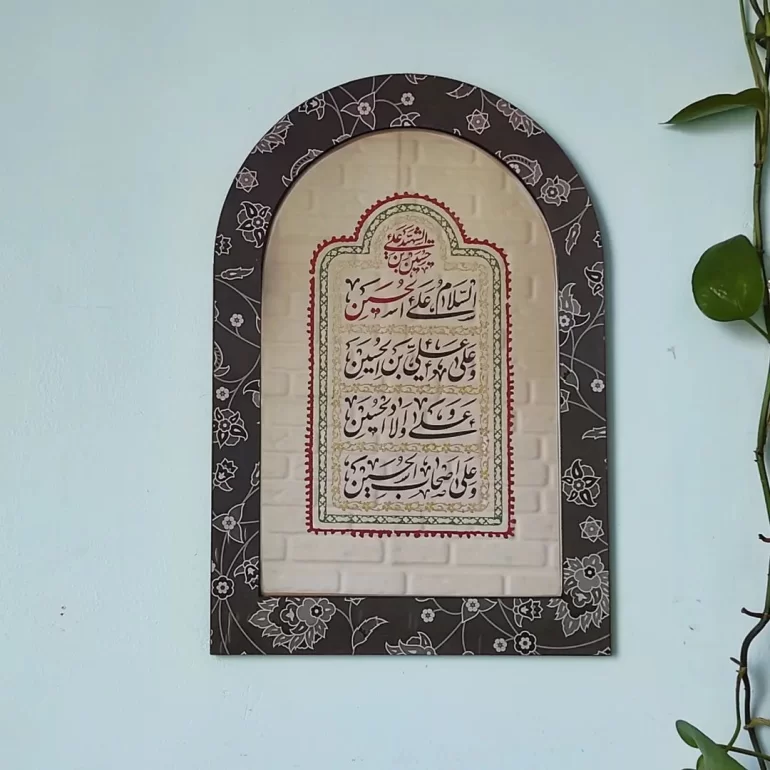 حسین بن علی الشهید
السَّلامُ عَلَی الحُسَین
وَعَلی عَلیِّ بنِ الحُسَین
وَعَلی اَولادِ الحُسَین
وَعَلی اَصحابِ الحُسَین